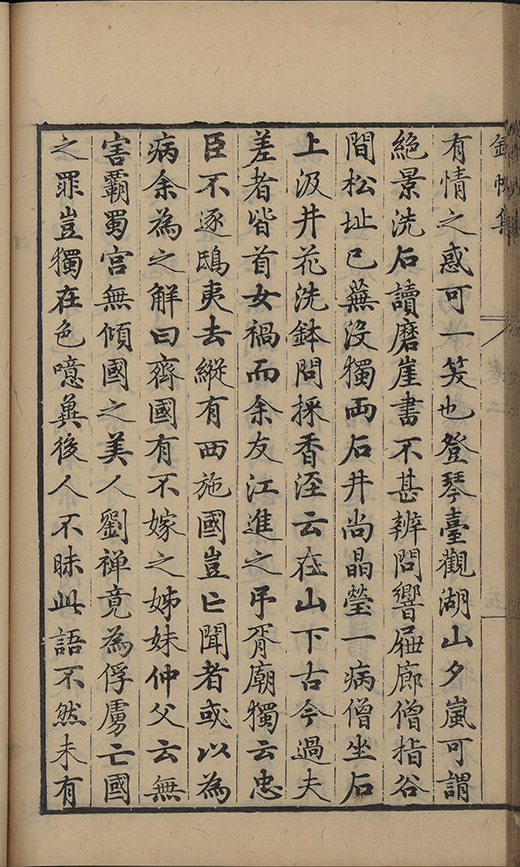 錦帆集
卷二
五
有情之惑可一笑也登琴臺觀湖山夕嵐可謂
絕景洗石讀磨崖書不甚辨問響屧廊僧指谷
間松址已蕪沒獨兩石井尚晶瑩一病僧坐石
上汲井花洗鉢問採香涇云在山下古今過夫
差者皆首女禍而余友江進之弔胥廟獨云忠
臣不逐鴟夷去縱有西施國豈亡聞者或以為
病余為之解曰齊國有不嫁之姊妹仲父云無
害霸蜀宮無傾國之美人劉禪竟為俘虜亡國
之罪豈獨在色噫冀後人不昧此語不然未有